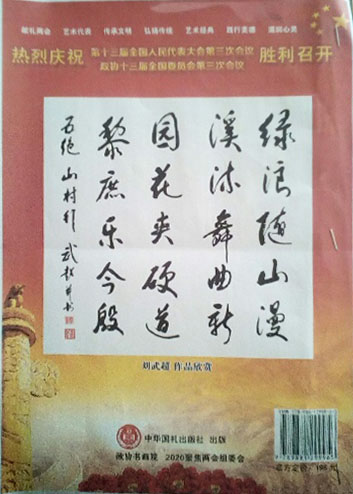 献礼两会 艺术代表 传承文明 弘扬传统 艺术经典 践行美德 滋润心灵
热烈庆祝 第十三届全国人民代表大会第三次会议 胜利召开
政协十三届全国委员会第三次会议
绿浪随山漫
溪流舞曲新
园花夹硬道
黎庶乐今殷
五绝 山村行 武超并书
刘武超 作品欣赏
中华国礼出版社 出版
政协书画院 2020聚焦两会组委会